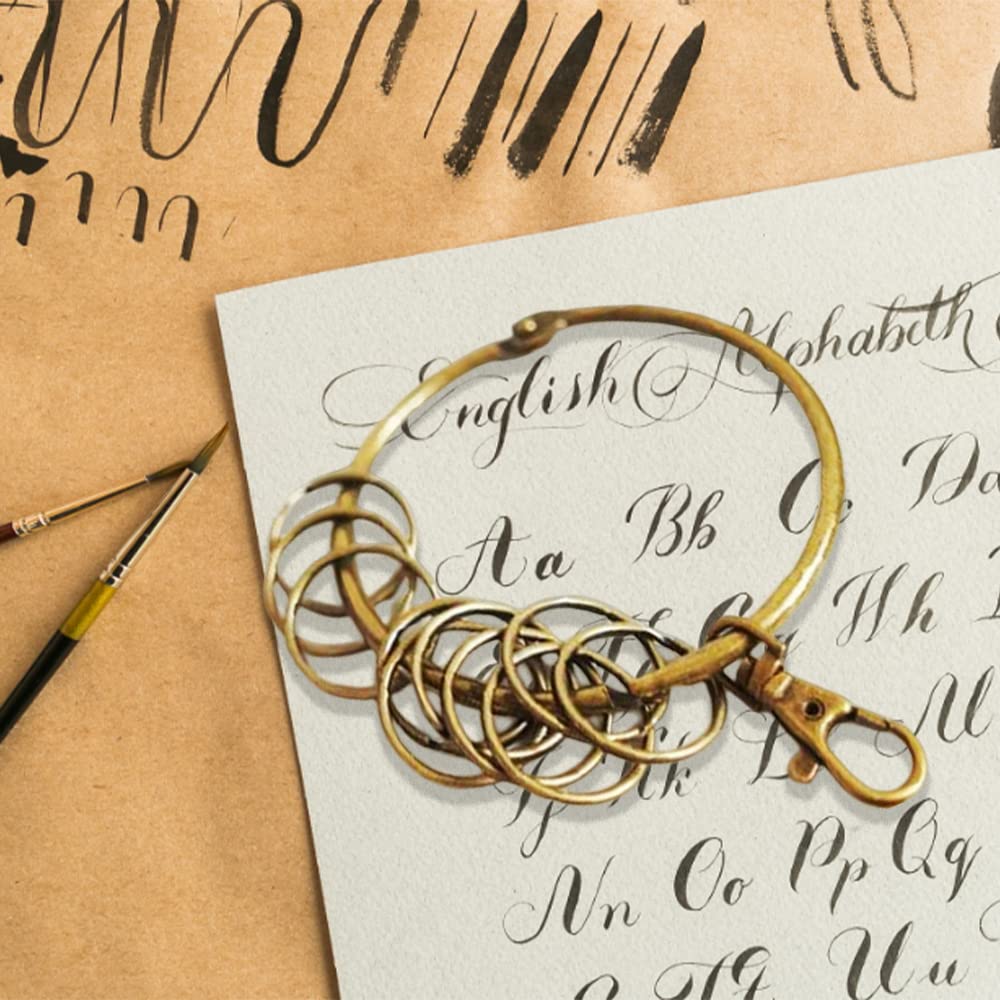 English Alphabeth
Aa Bb Cc D
Hh
Kk L M
Nn Oo Pp Qq
Tt Uu